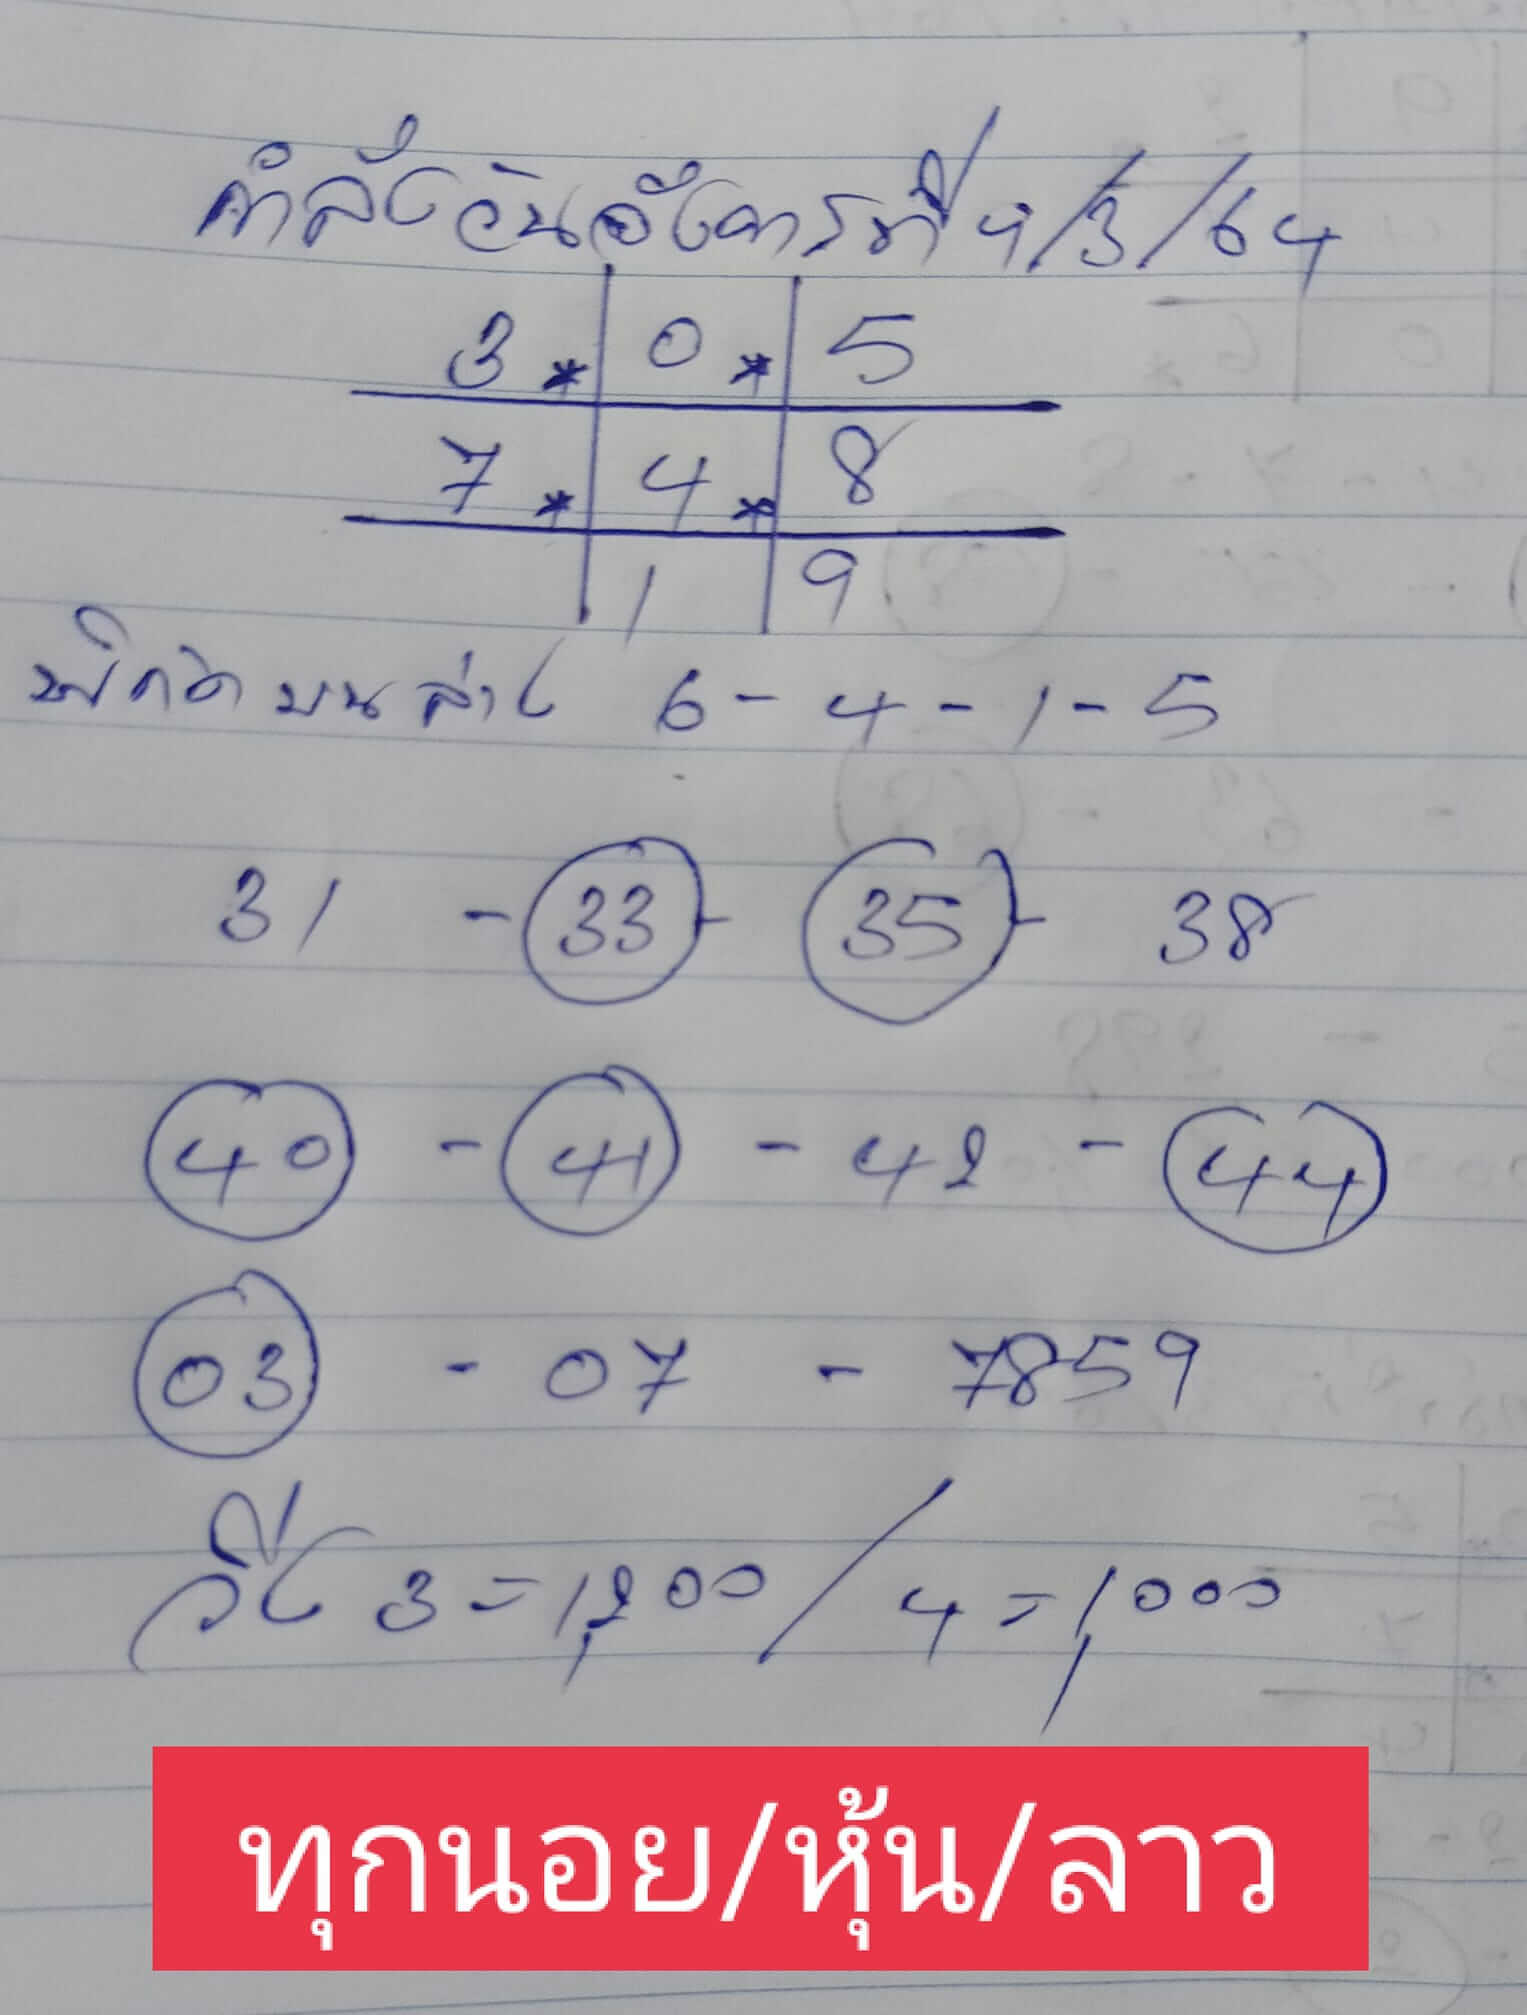 กำลังวันอังคารที่ 9/3/64
3 * 0 * 5
7 * 4 * 8
1 9
พิกัด บน ล่าง 6 - 4 - 1 - 5
31 - 33 - 35 - 38
40 - 41 - 42 - 44
03 - 07 - 7859
วิ่ง 3 = 1,200 / 4 = 1,000
ทุกนอย/หุ้น/ลาว